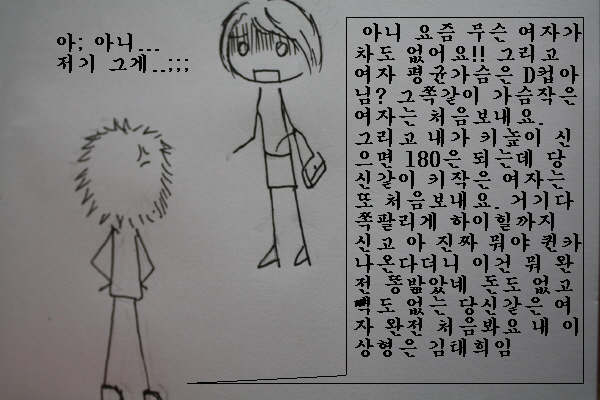 아; 아니...
저기 그게..;;;
아니 요즘 무슨 여자가
차도 없어요!! 그리고
여자 평균가슴은 D컵아
님? 그쪽같이 가슴작은
여자는 처음보내요.
그리고 내가 키높이 신
으면 180은 되는데 당
신같이 키작은 여자는
또 처음보내요. 거기다
쪽팔리게 하이힐까지
신고 아 진짜 뭐야 퀸카
나온다더니 이건 뭐 완
전 똥밟았네 돈도 없고
빽도 없는 당신같은 여
자 완전 처음봐요 내 이
상형은 김태희임